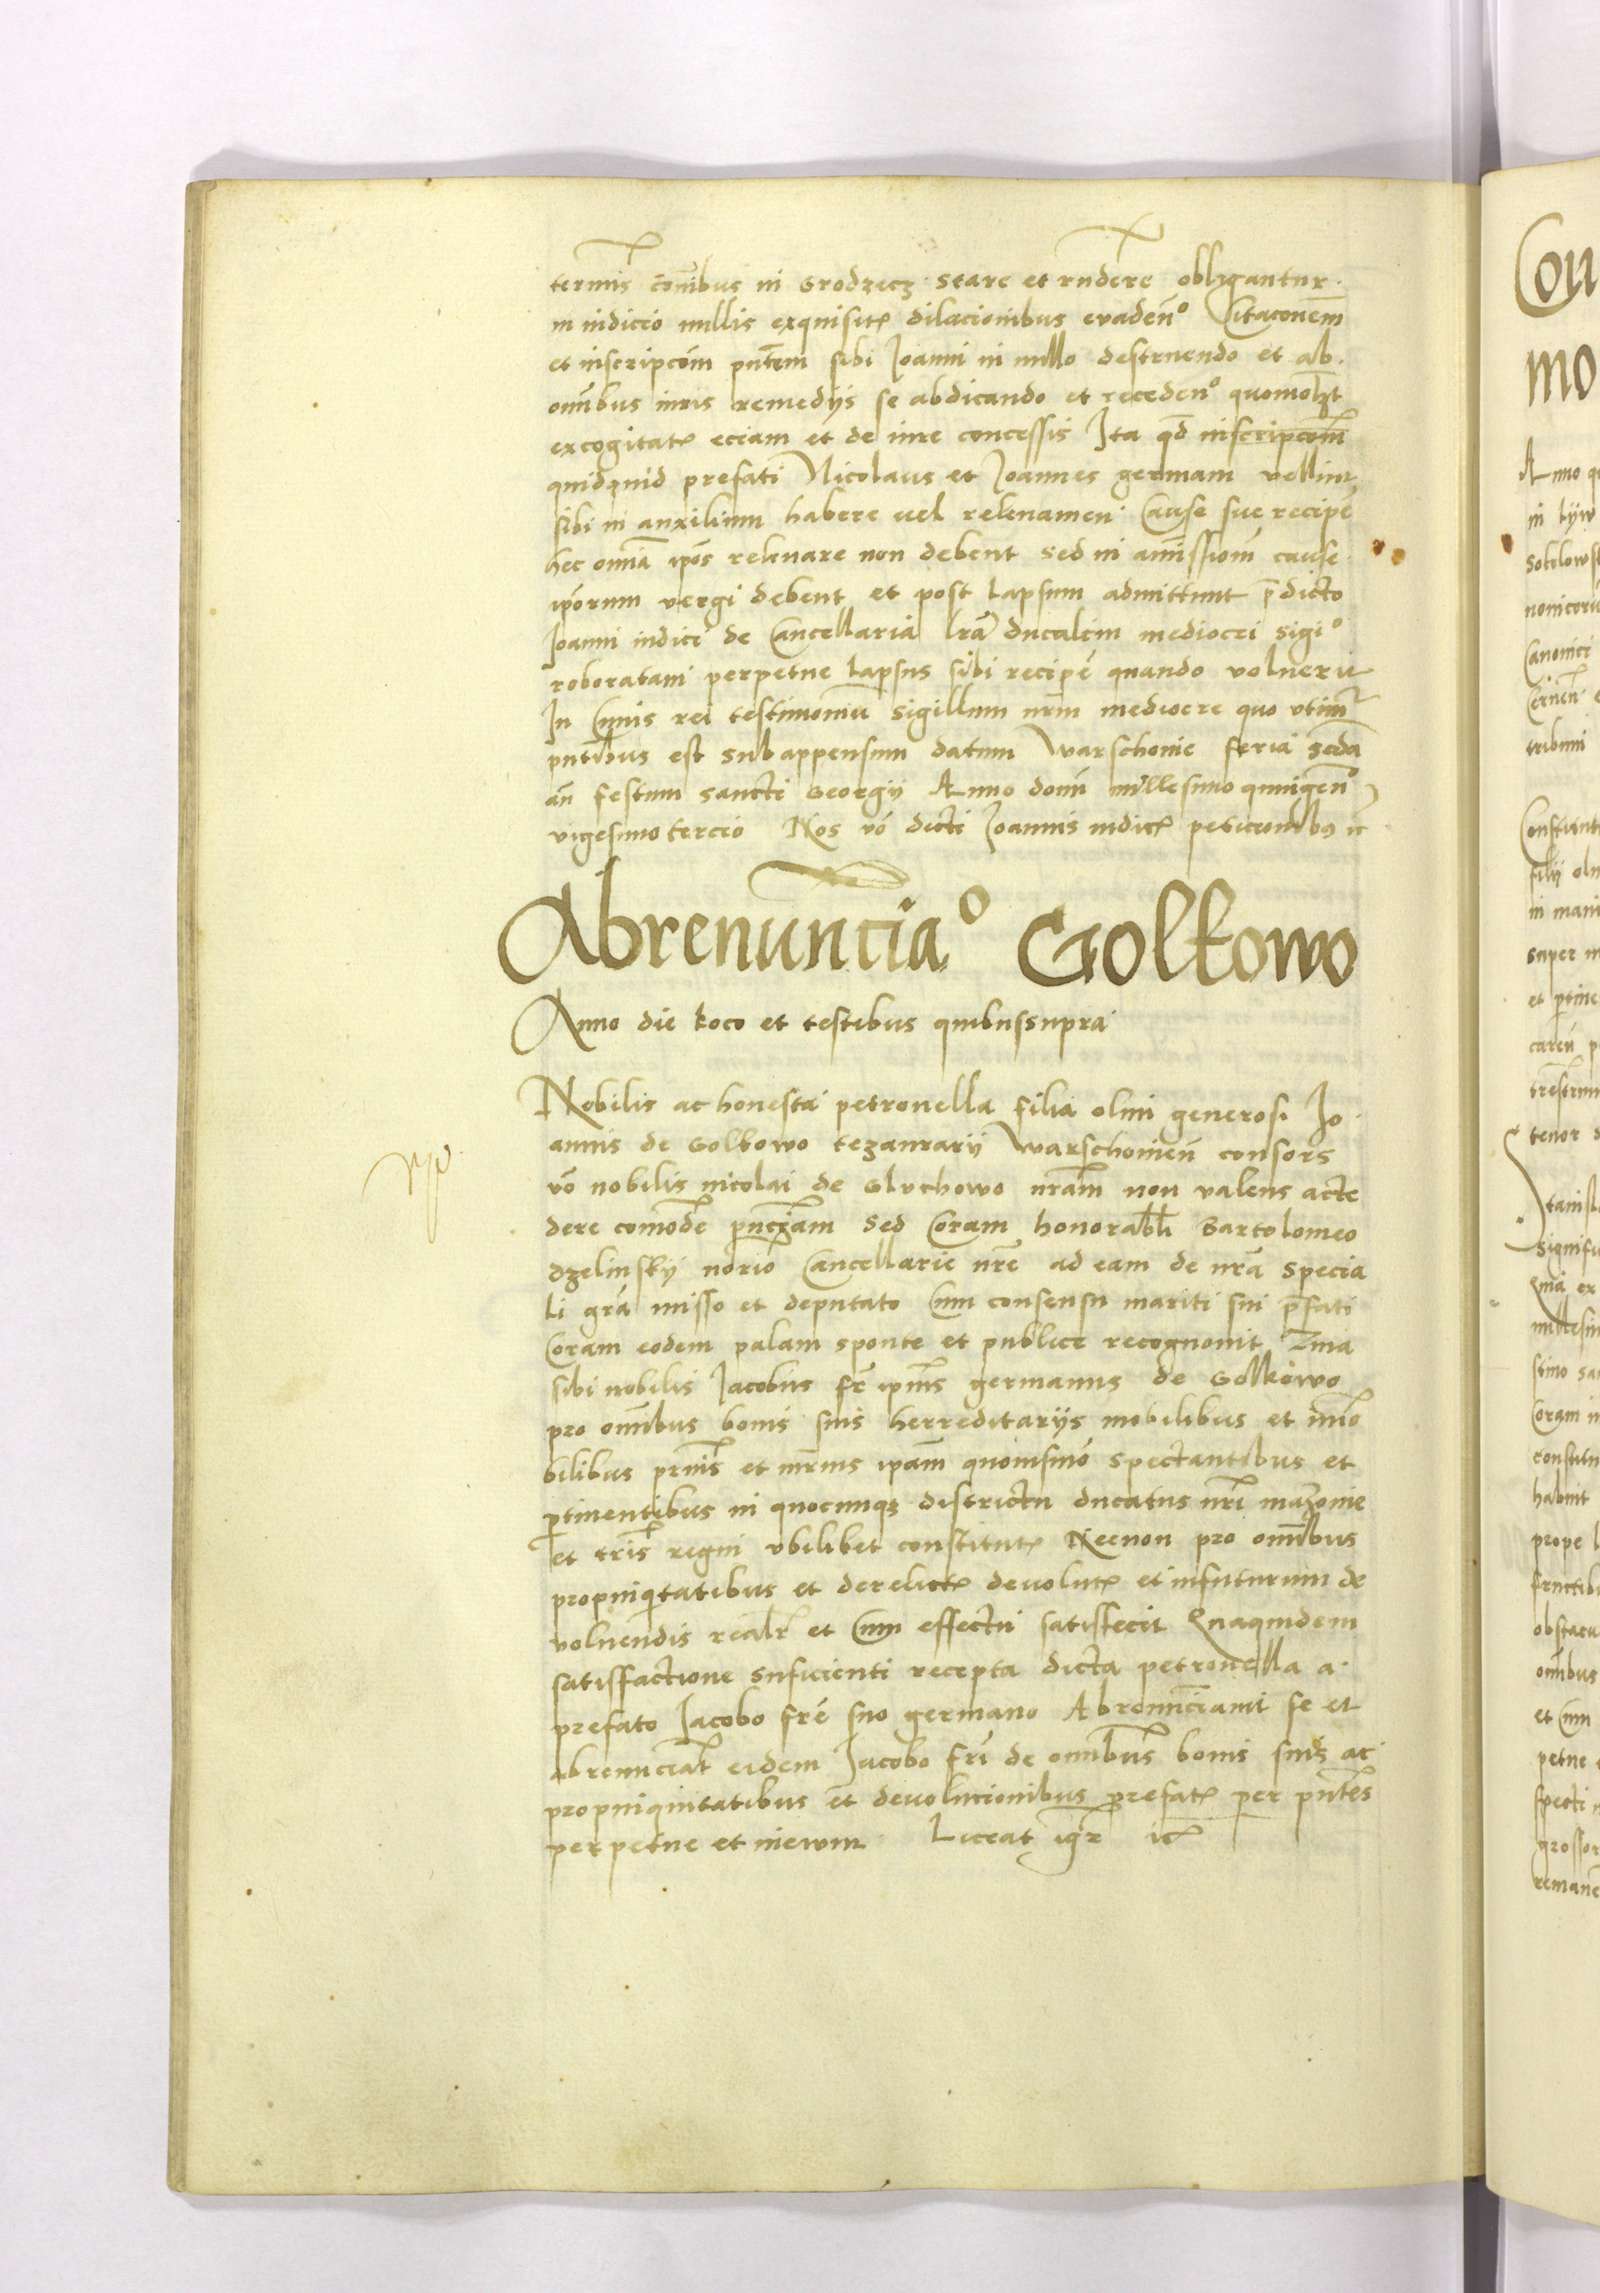 termīs cōībus in Grodzecz stare et rndēre obligantur
in iudicio nullis exquisitꝭ dilacionibus evadenº Citaconem̄
et inscripcōm pn̄tem sibi Joanni in nullo destruendo et ab
omībus iuris remedÿs se abdicando et recedenº quomoƚꝫt
excogitatꝭ eciam et de iure concessis Ita qd̄ inscripcom̄
quidquid prefati Nicolaus et Joannes germani vellint
sibi in auxilium habere uel releuamen Cause sue recipē
hec omīa ip̄os releuare non debent sed in amissiom̄ cause
ip̄orum vergi debent et post Lapsum admittunt p̄dicto
Joanni iudici de Cancellaria lrā ducalem mediocri sigiº
roboratam perpetue Lapsus sibi recipē quando voluerit
In Cuius rei testimoniū sigillum nr̄m mediocre quo vtimr̄
pn̄tibus est subappensum datum Warschouie feria scd̄a
an̄ festum sancti Georgÿ Anno domī millesimo quingenº
vigesimo tercio Nos vō dicti Joannis iudicꝭ peticionibꝫ ꝛc
Abrenunciaº Golkowo
Anno die Loco et testibus quibussupra
Nobilis ac honesta petronella filia olim generosi Jo
annis de Golkowo tezaurarÿ Warschouien̄ consors
vō nobilis nicolai de Gluchowo nrām non valens acce
dere comode pn̄ciam sed Coram honorabli Bartolomeo
dzelinskÿ norio Cancellarie nrē ad eam de nrā specia
li grā misso et deputato Cum consensu mariti sui p̄fati
Coram eodem palam sponte et publice recognouit Quia
sibi nobilis Jacobus fr̄ ipīus germanus de Golkowo
pro omībus bonis suis herreditarÿs mobilibus et im̄o
bilibus pr̄nis et mr̄nis ip̄am quouismō spectantibus et
ptinentibus in quocunqꝫ districtu ducatus nrī mazouie
et trīs regni vbilibet constitutꝭ Necnon pro omībus
propinqitatibus et derelictꝭ deuolutꝭ et infuturum de
voluendis realr̄ et Cum effectu satisfecit Quaquidem
satisffactione sufficienti recepta dicta petronella a
prefato Jacobo frē suo germano Abrenūciauit se et
abrenūciat eidem Jacobo frī de omībus bonis suis ac
propinquitatibus et deuolucionibus prefatꝭ per pn̄tes
perpetue et in ewm Liceat igr̄ ꝛcꝭ